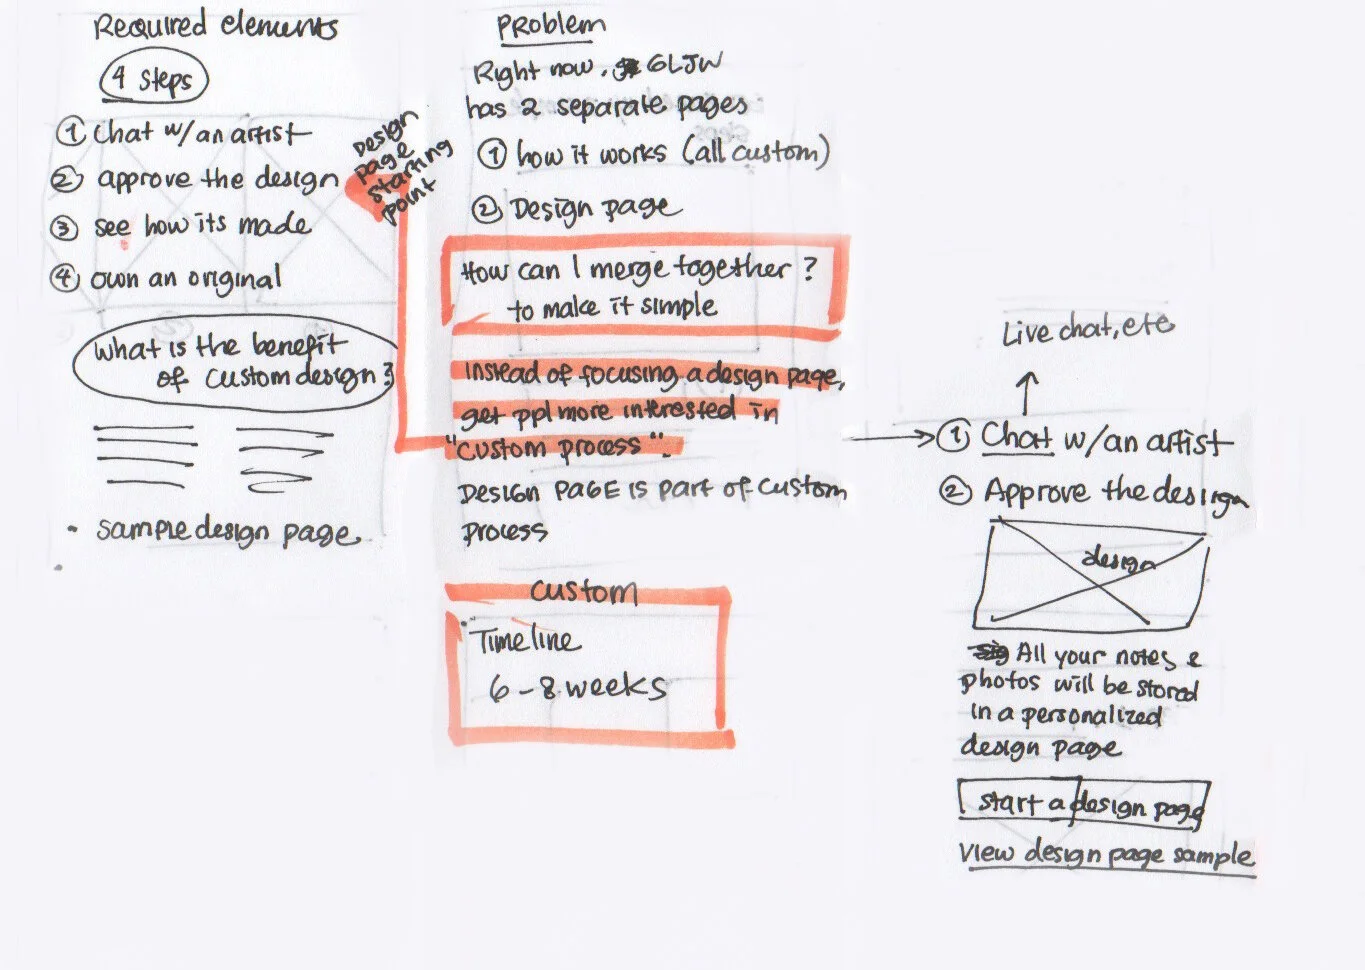 Required elements
4 steps
① Chat w/an artist
② approve the design
③ see how its made
④ own an original
What is the benefit
of custom design?
• sample design page
Design
page
starting
point
PROblem
Right now, GLJW
has 2 separate pages
① how it works (all custom)
② Design page
How can I merge together?
to make it simple
instead of focusing a design page,
get ppl more interested in
"custom process".
DESIGN PAGE IS PART OF CUSTOM
PROCESS
CUSTOM
Timeline
6-8 weeks
Live chat, etc
① Chat w/an artist
② Approve the design
design
All your notes &
photos will be stored
in a personalized
design page
start a design page
View design page sample